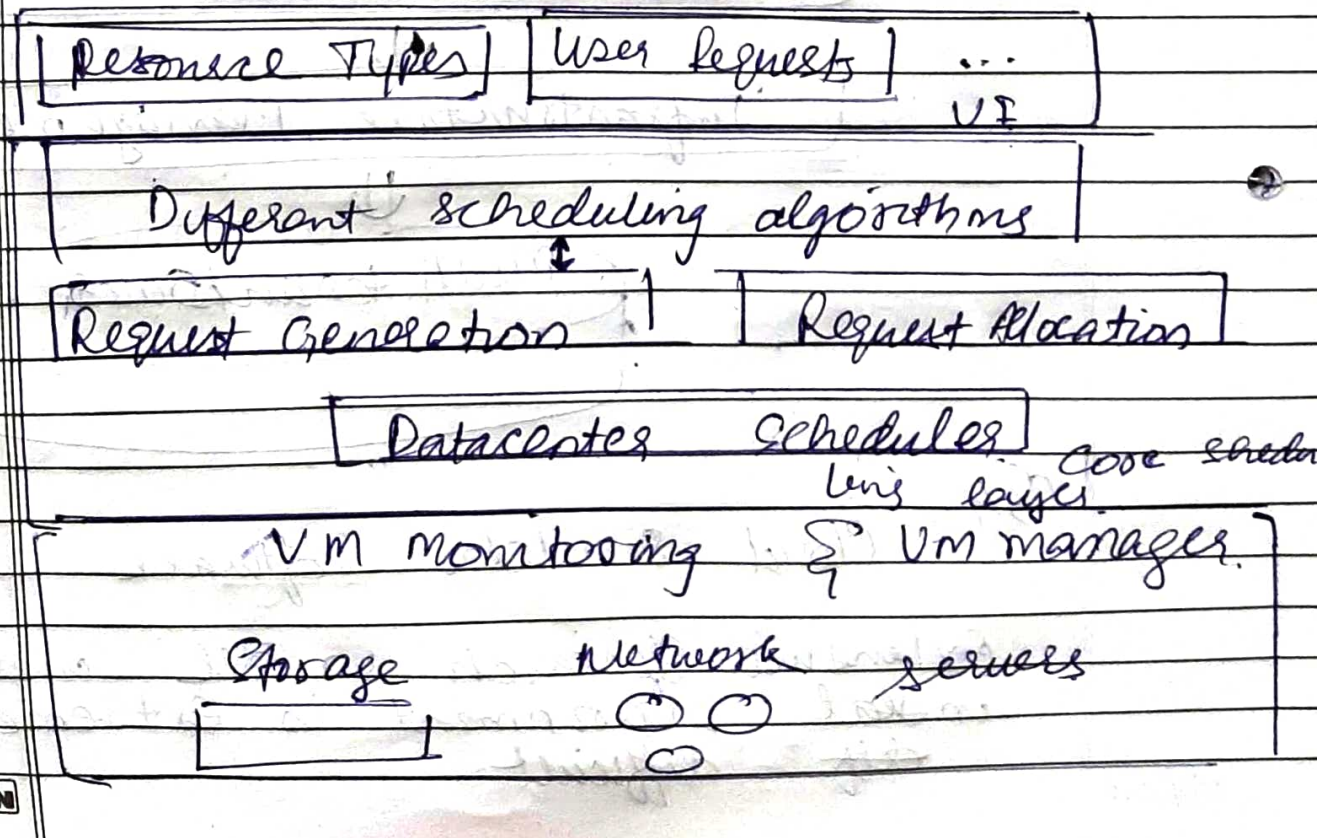 Resource Types User Requests ...
UI
Different scheduling algorithms
Request Generation Request Allocation
Datacenter Scheduler
Core Schedu
ling layer.
VM monitoring & VM manager.
Storage Network servers